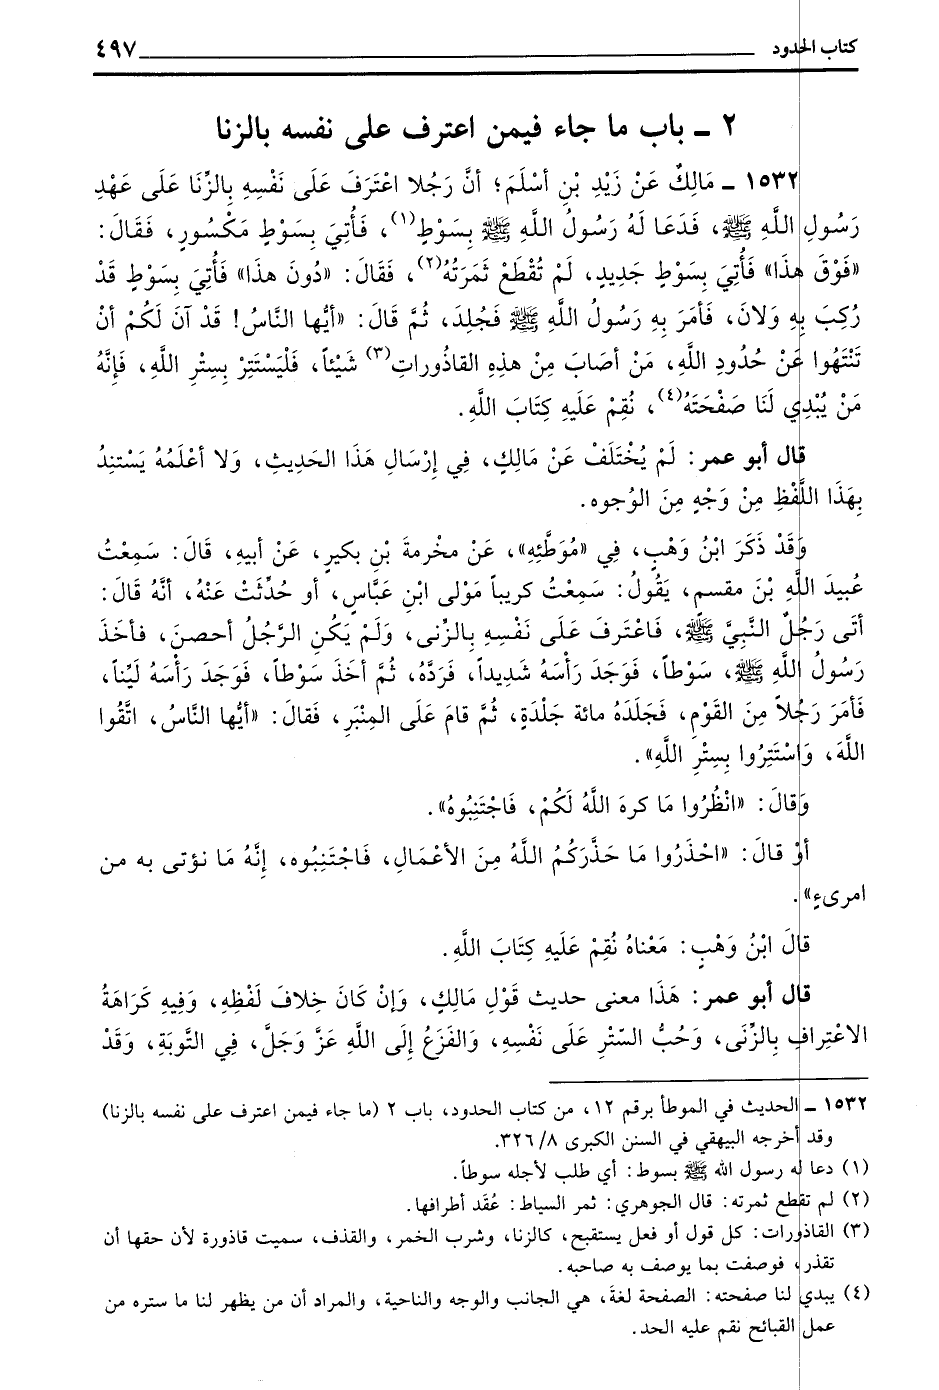 كتاب الحدود ٤٩٧
٢ ـ باب ما جاء فيمن اعترف على نفسه بالزنا
١٥٣٢ ـ مَالِكٌ عَنْ زَيْدِ بْنِ أسْلَمَ؛ أنَّ رَجُلا اعْتَرَفَ عَلَى نَفْسِهِ بِالزِّنَا عَلَى عَهْدِ
رَسُولِ اللَّهِ ﷺ، فَدَعَا لَهُ رَسُولُ اللَّهِ ﷺ بِسَوْطٍ(١)، فَأُتِيَ بِسَوْطٍ مَكْسُورٍ، فَقَالَ:
«فَوْقَ هذَا» فَأُتِيَ بِسَوْطٍ جَدِيدٍ، لَمْ تُقْطَعْ ثَمَرَتُهُ(٢)، فَقَالَ: «دُونَ هذَا» فَأُتِيَ بِسَوْطٍ قَدْ
رُكِبَ بِهِ وَلانَ، فَأمَرَ بِهِ رَسُولُ اللَّهِ ﷺ فَجُلِدَ، ثُمَّ قَالَ: «أيُّها النَّاسُ! قَدْ آنَ لَكُمْ أنْ
تَنْتَهُوا عَنْ حُدُودِ اللَّهِ، مَنْ أصَابَ مِنْ هذِهِ القَاذُوراتِ(٣) شَيْئاً، فَلْيَسْتَتِرْ بِسِتْرِ اللَّهِ، فَإنَّهُ
مَنْ يُبْدِي لَنَا صَفْحَتَهُ(٤)، نُقِمْ عَلَيْهِ كِتَابَ اللَّهِ.
قال أبو عمر: لَمْ يُخْتَلَفْ عَنْ مَالِكٍ، فِي إرْسَالِ هَذَا الحَدِيثِ، وَلا أعْلَمُهُ يَسْتنِدُ
بِهَذَا اللَّفْظِ مِنْ وَجْهٍ مِنَ الوُجوه.
وَقَدْ ذَكَرَ ابْنُ وَهْبٍ، فِي «مُوَطَّئِهِ»، عَنْ مخْرمةَ بْنِ بكيرٍ، عَنْ أبيهِ، قَالَ: سَمِعْتُ
عُبيدَ اللَّهِ بْنَ مقسمٍ، يَقُولُ: سَمِعْتُ كريباً مَوْلى ابْنِ عَبَّاسٍ، أو حُدِّثَتْ عَنْهُ، أنَّهُ قَالَ:
أتَى رَجُلٌ النَّبِيَّ ﷺ، فَاعْتَرفَ عَلَى نَفْسِهِ بِالزِّنى، وَلَمْ يَكُنِ الرَّجُلُ أحصنَ، فأخَذَ
رَسُولُ اللَّهِ ﷺ، سَوْطاً، فَوَجَدَ رَأْسَهُ شَدِيداً، فَرَدَّهُ، ثُمَّ أخَذَ سَوْطاً، فَوَجَدَ رَأْسَهُ لَيِّناً،
فَأمَرَ رَجُلاً مِنَ القَوْمِ، فَجَلَدَهُ مائة جَلْدَةٍ، ثُمَّ قامَ عَلَى المِنْبَرِ، فَقالَ: «أيُّها النَّاسُ، اتَّقُوا
اللَّهَ، وَاسْتَتِرُوا بِسِتْرِ اللَّهِ».
وَقالَ: «انْظُرُوا مَا كرهَ اللَّهُ لَكُمْ، فَاجْتَنِبُوهُ».
أوْ قالَ: «احْذَرُوا مَا حَذَّرَكُمُ اللَّهُ مِنَ الأعْمَالِ، فَاجْتَنِبُوه، إنَّهُ مَا نؤتى به من
امرىءٍ».
قالَ ابْنُ وَهْبٍ: مَعْناهُ نُقِمْ عَلَيْهِ كِتَابَ اللَّهِ.
قال أبو عمر: هَذَا معنى حديث قَوْلِ مَالِكٍ، وَإنْ كَانَ خِلافَ لَفْظِهِ، وَفِيهِ كَرَاهَةُ
الاعْتِرافِ بِالزِّنَى، وَحُبُّ السّتْرِ عَلَى نَفْسِهِ، وَالفَزَعُ إلَى اللَّهِ عَزَّ وَجَلَّ، فِي التَّوبَةِ، وَقَدْ
١٥٣٢ ـ الحديث في الموطأ برقم ١٢، من كتاب الحدود، باب ٢ (ما جاء فيمن اعترف على نفسه بالزنا)
وقد أخرجه البيهقي في السنن الكبرى ٣٢٦/٨.
(١) دعا له رسول الله ﷺ بسوط: أي طلب لأجله سوطاً.
(٢) لم تقطع ثمرته: قال الجوهري: ثمر السياط: عُقَد أطرافها.
(٣) القاذورات: كل قول أو فعل يستقبح، كالزنا، وشرب الخمر، والقذف، سميت قاذورة لأن حقها أن
تقذر، فوصفت بما يوصف به صاحبه.
(٤) يبدي لنا صفحته: الصفحة لغةً، هي الجانب والوجه والناحية، والمراد أن من يظهر لنا ما ستره من
عمل القبائح نقم عليه الحد.